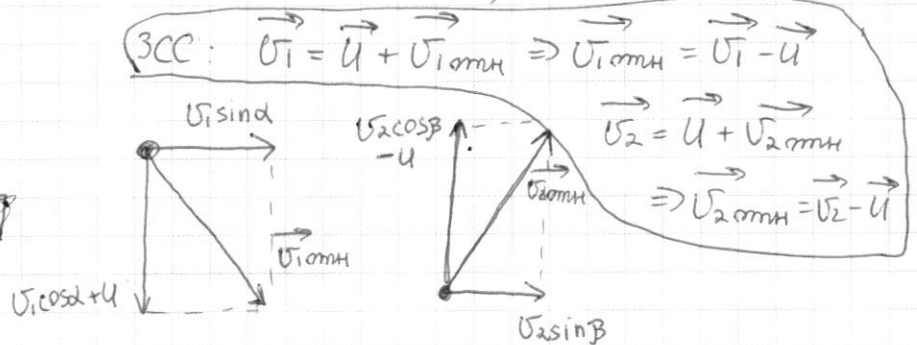 ЗСС: v⃗₁ = u⃗ + v⃗₁отн ⇒ v⃗₁отн = v⃗₁ - u⃗
v⃗₂ = u⃗ + v⃗₂отн
⇒ v⃗₂отн = v⃗₂ - u⃗
v₁sinα
v⃗₁отн
v₁cosα+u
v₂cosβ
-u
v⃗₂отн
v₂sinβ